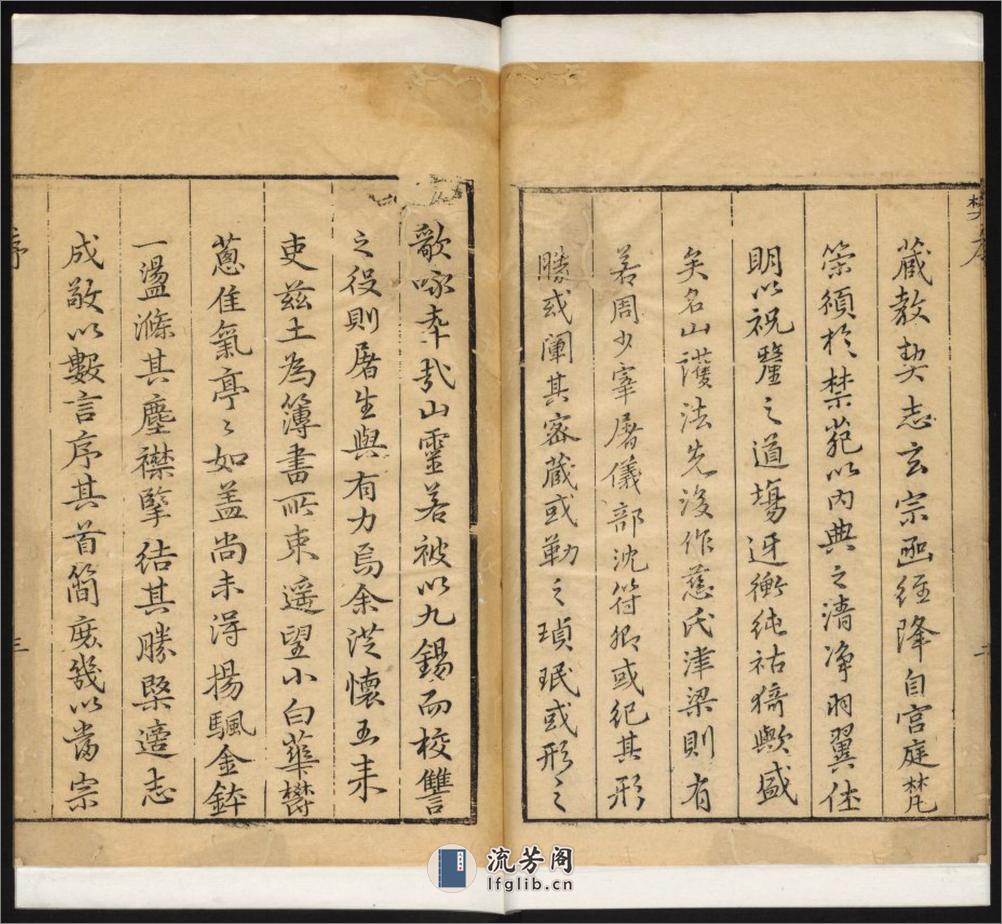 藏教契志玄宗函經降自宮庭梵
筞頒於禁苑以內典之清净羽翼
明以祝釐之道塲迓衡純祜猗歟盛
矣名山護法先後作慈氏津梁則有
若周少宰屠儀部沈符卿或紀其形
勝或闡其密藏或勒之瑱珉或形之
歌咏幸哉山靈若被以九錫而校讐
之役則屠生與有力焉余從懷玉来
吏兹土為簿書所束遥望小白華鬱
蔥佳氣亭〻如盖尚未得揚颿金鉢
一盪滌其塵襟擥結其勝槩邉志
成敬以數言序其首簡庻幾以當宗
流芳阁
lfglib.cn